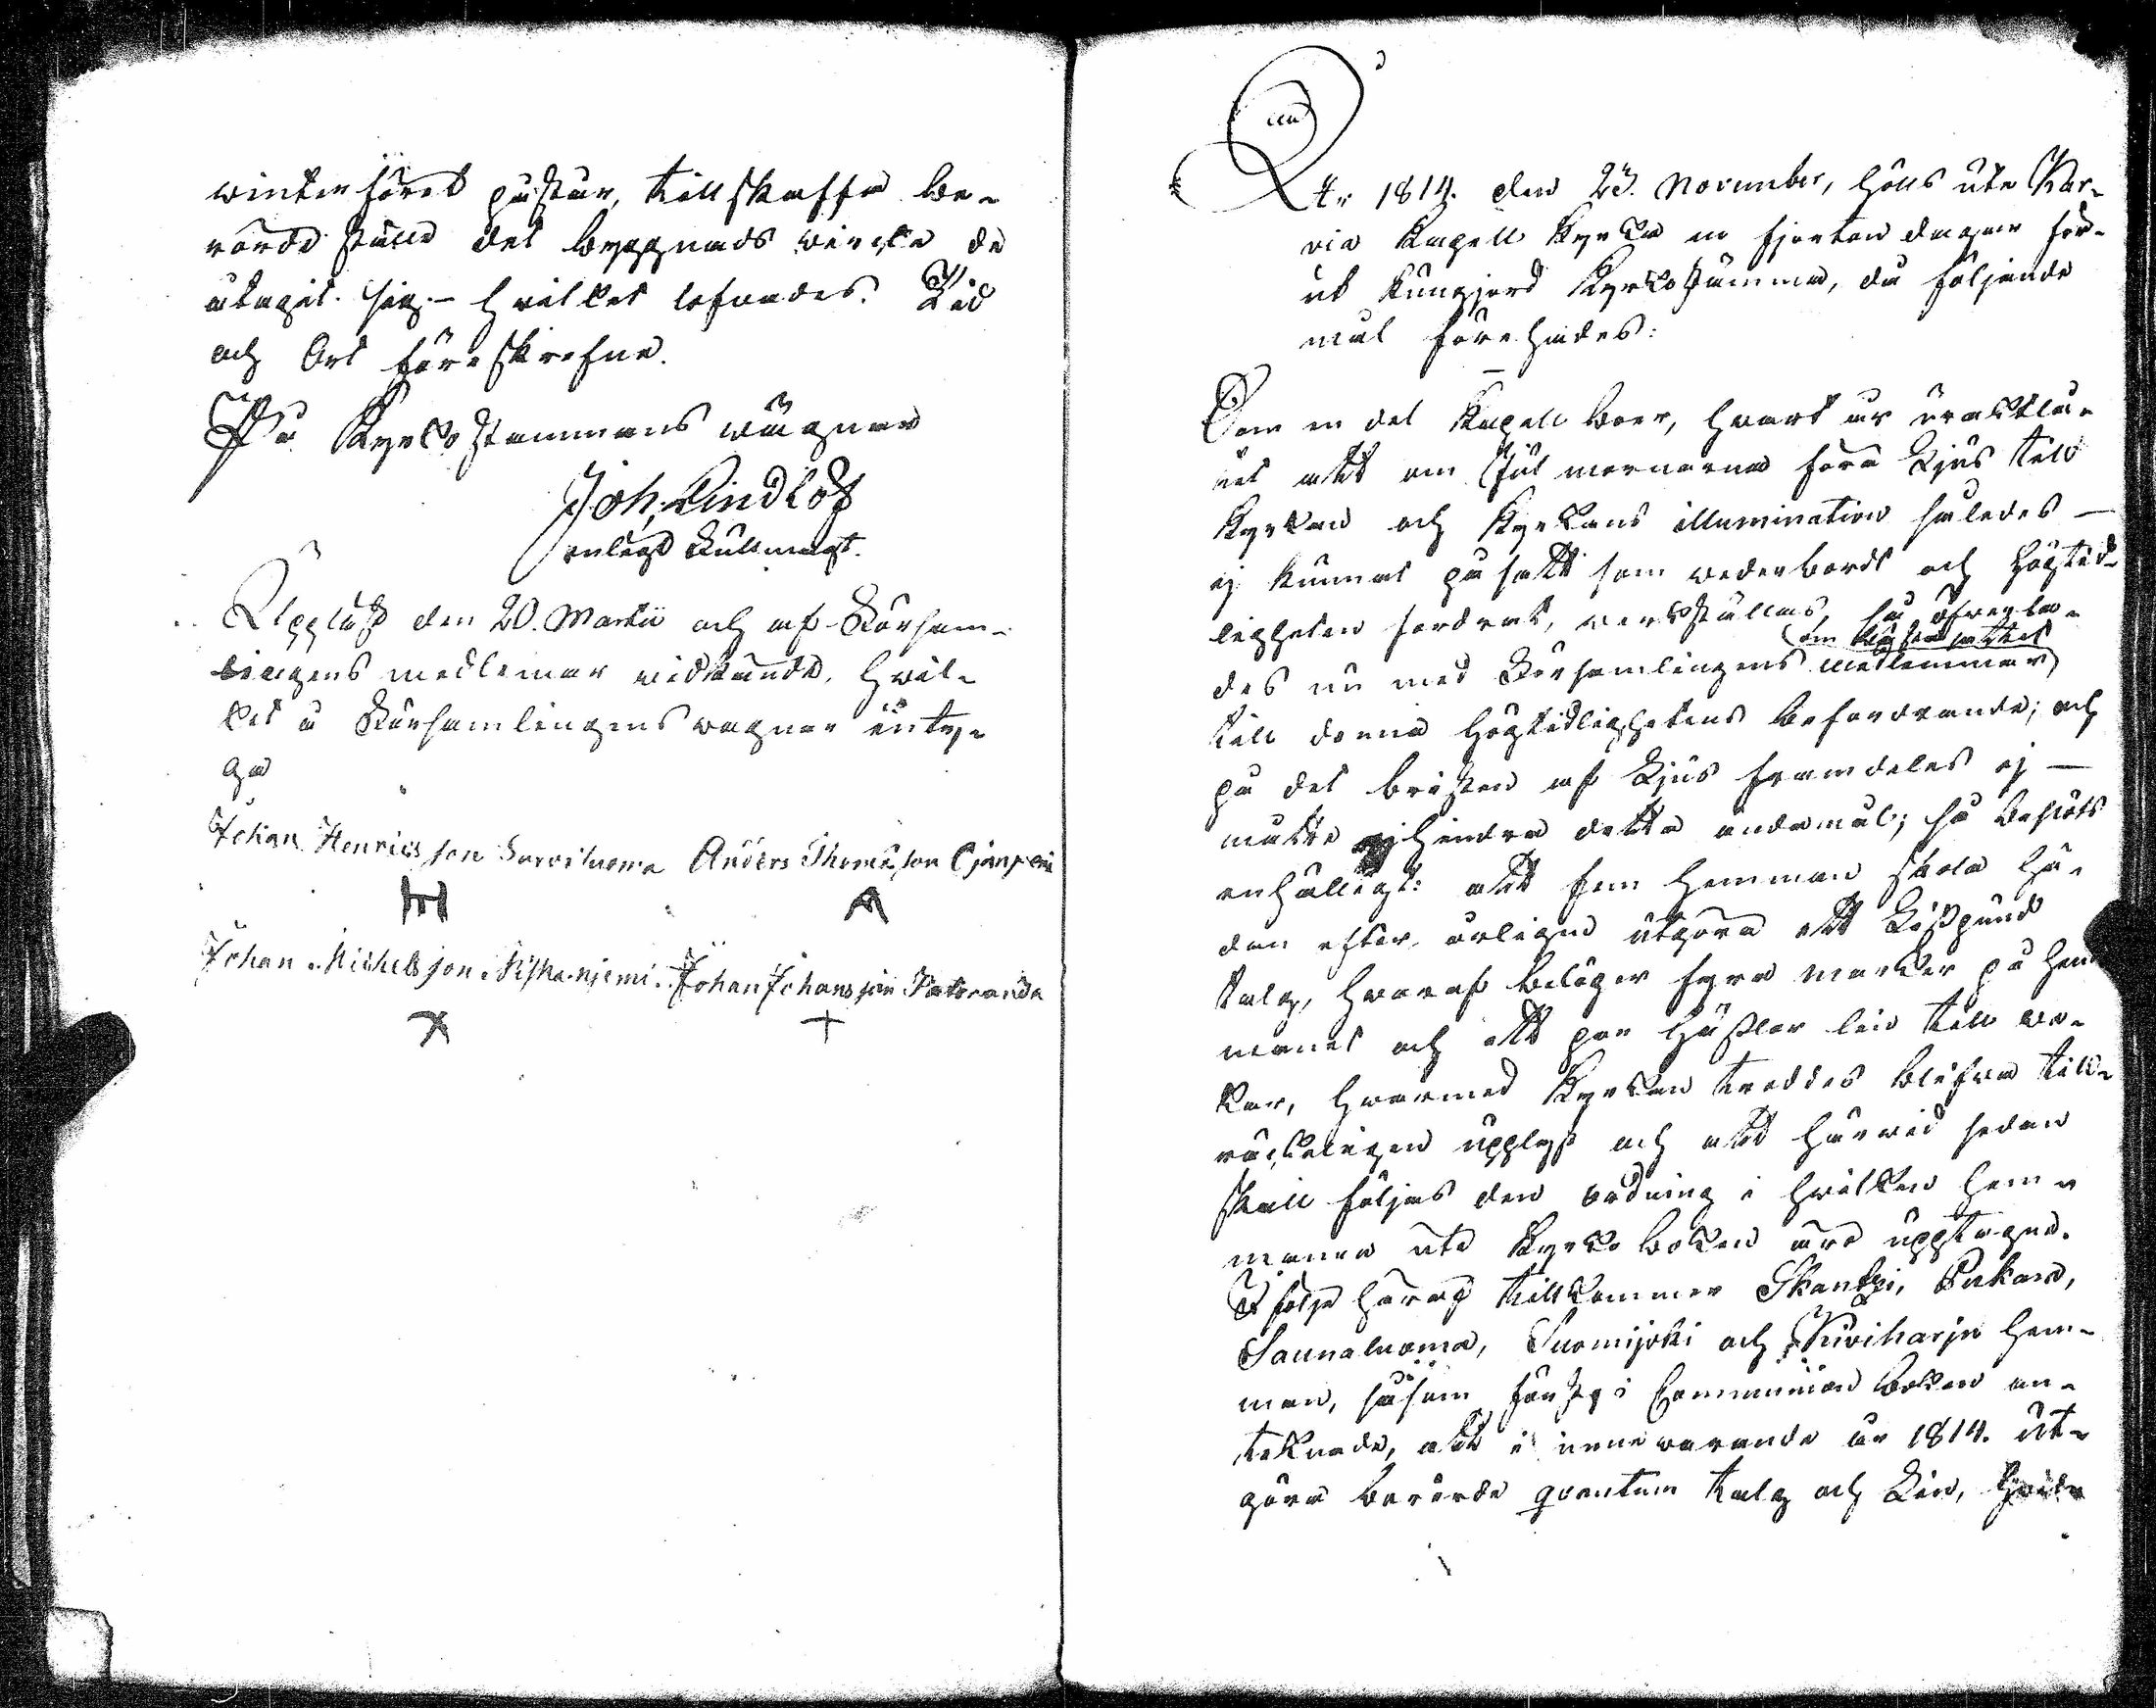 winterföret påstår, tillskaffa be-
rörde ställe det byggnads wircke de
åtagit sig. – hvilket lofvades. Tid
och Ort föreskrefne.
På Kyrkostämmans wägnar
Joh. Lindlöf
enligt Fullmagt.
Uppläst den 20. Martii och af Församlingens
lingens medlemar vidkändt, hvil-
ket å Församlingens wägnar inty-
ga
Johan Henricsson Sarviluoma Anders Thomasson Ojanperä
Johan Michelsson Niskaniemi. Johan Johansson Patoranda
År 1814. den 23. November, hölls uti Kar-
via Kapell Kyrka en fjorton dagar för-
ut kungjord Kyrkostämma, då följande
mål förehades:
Som en del Kapell boer, hvart år uraktlå-
tit att om Jul mornarna föra Ljus till
Kyrkan och Kyrkans illumination således –
ej kunnat på sätt som wederbordt och högtid-
ligheten fordrat, werkställas, så öfverla-
des nu med Församlingens medlemmar
om
till denna högtidlighetens befordrande; och
på det bristen af Ljus framdeles ej –
måtte hindra detta ändamål; så beslöts
enhälligt: att fem hemman skola hä-
dan efter årligen utgöra ett Lispund
talg, hvaraf belöper fyra marker på hem
manet och ett par häslor lin till we-
kar, hvarmed Kyrkan troddes blifva till-
räckeligen upplyst och att härwid sedan
skall följas den ordning i hvilken hem-
manen uti Kyrko boken äro upptagna.
I följe häraf tillkommer Skantzi, Pukara,
Saunaluoma, Suomijoki och Kiviharju hem-
man, såsom först i Communion boken an-
teknade, att i innewarande år 1814. ut-
göra berörde quantum talg och Lin, hvilk